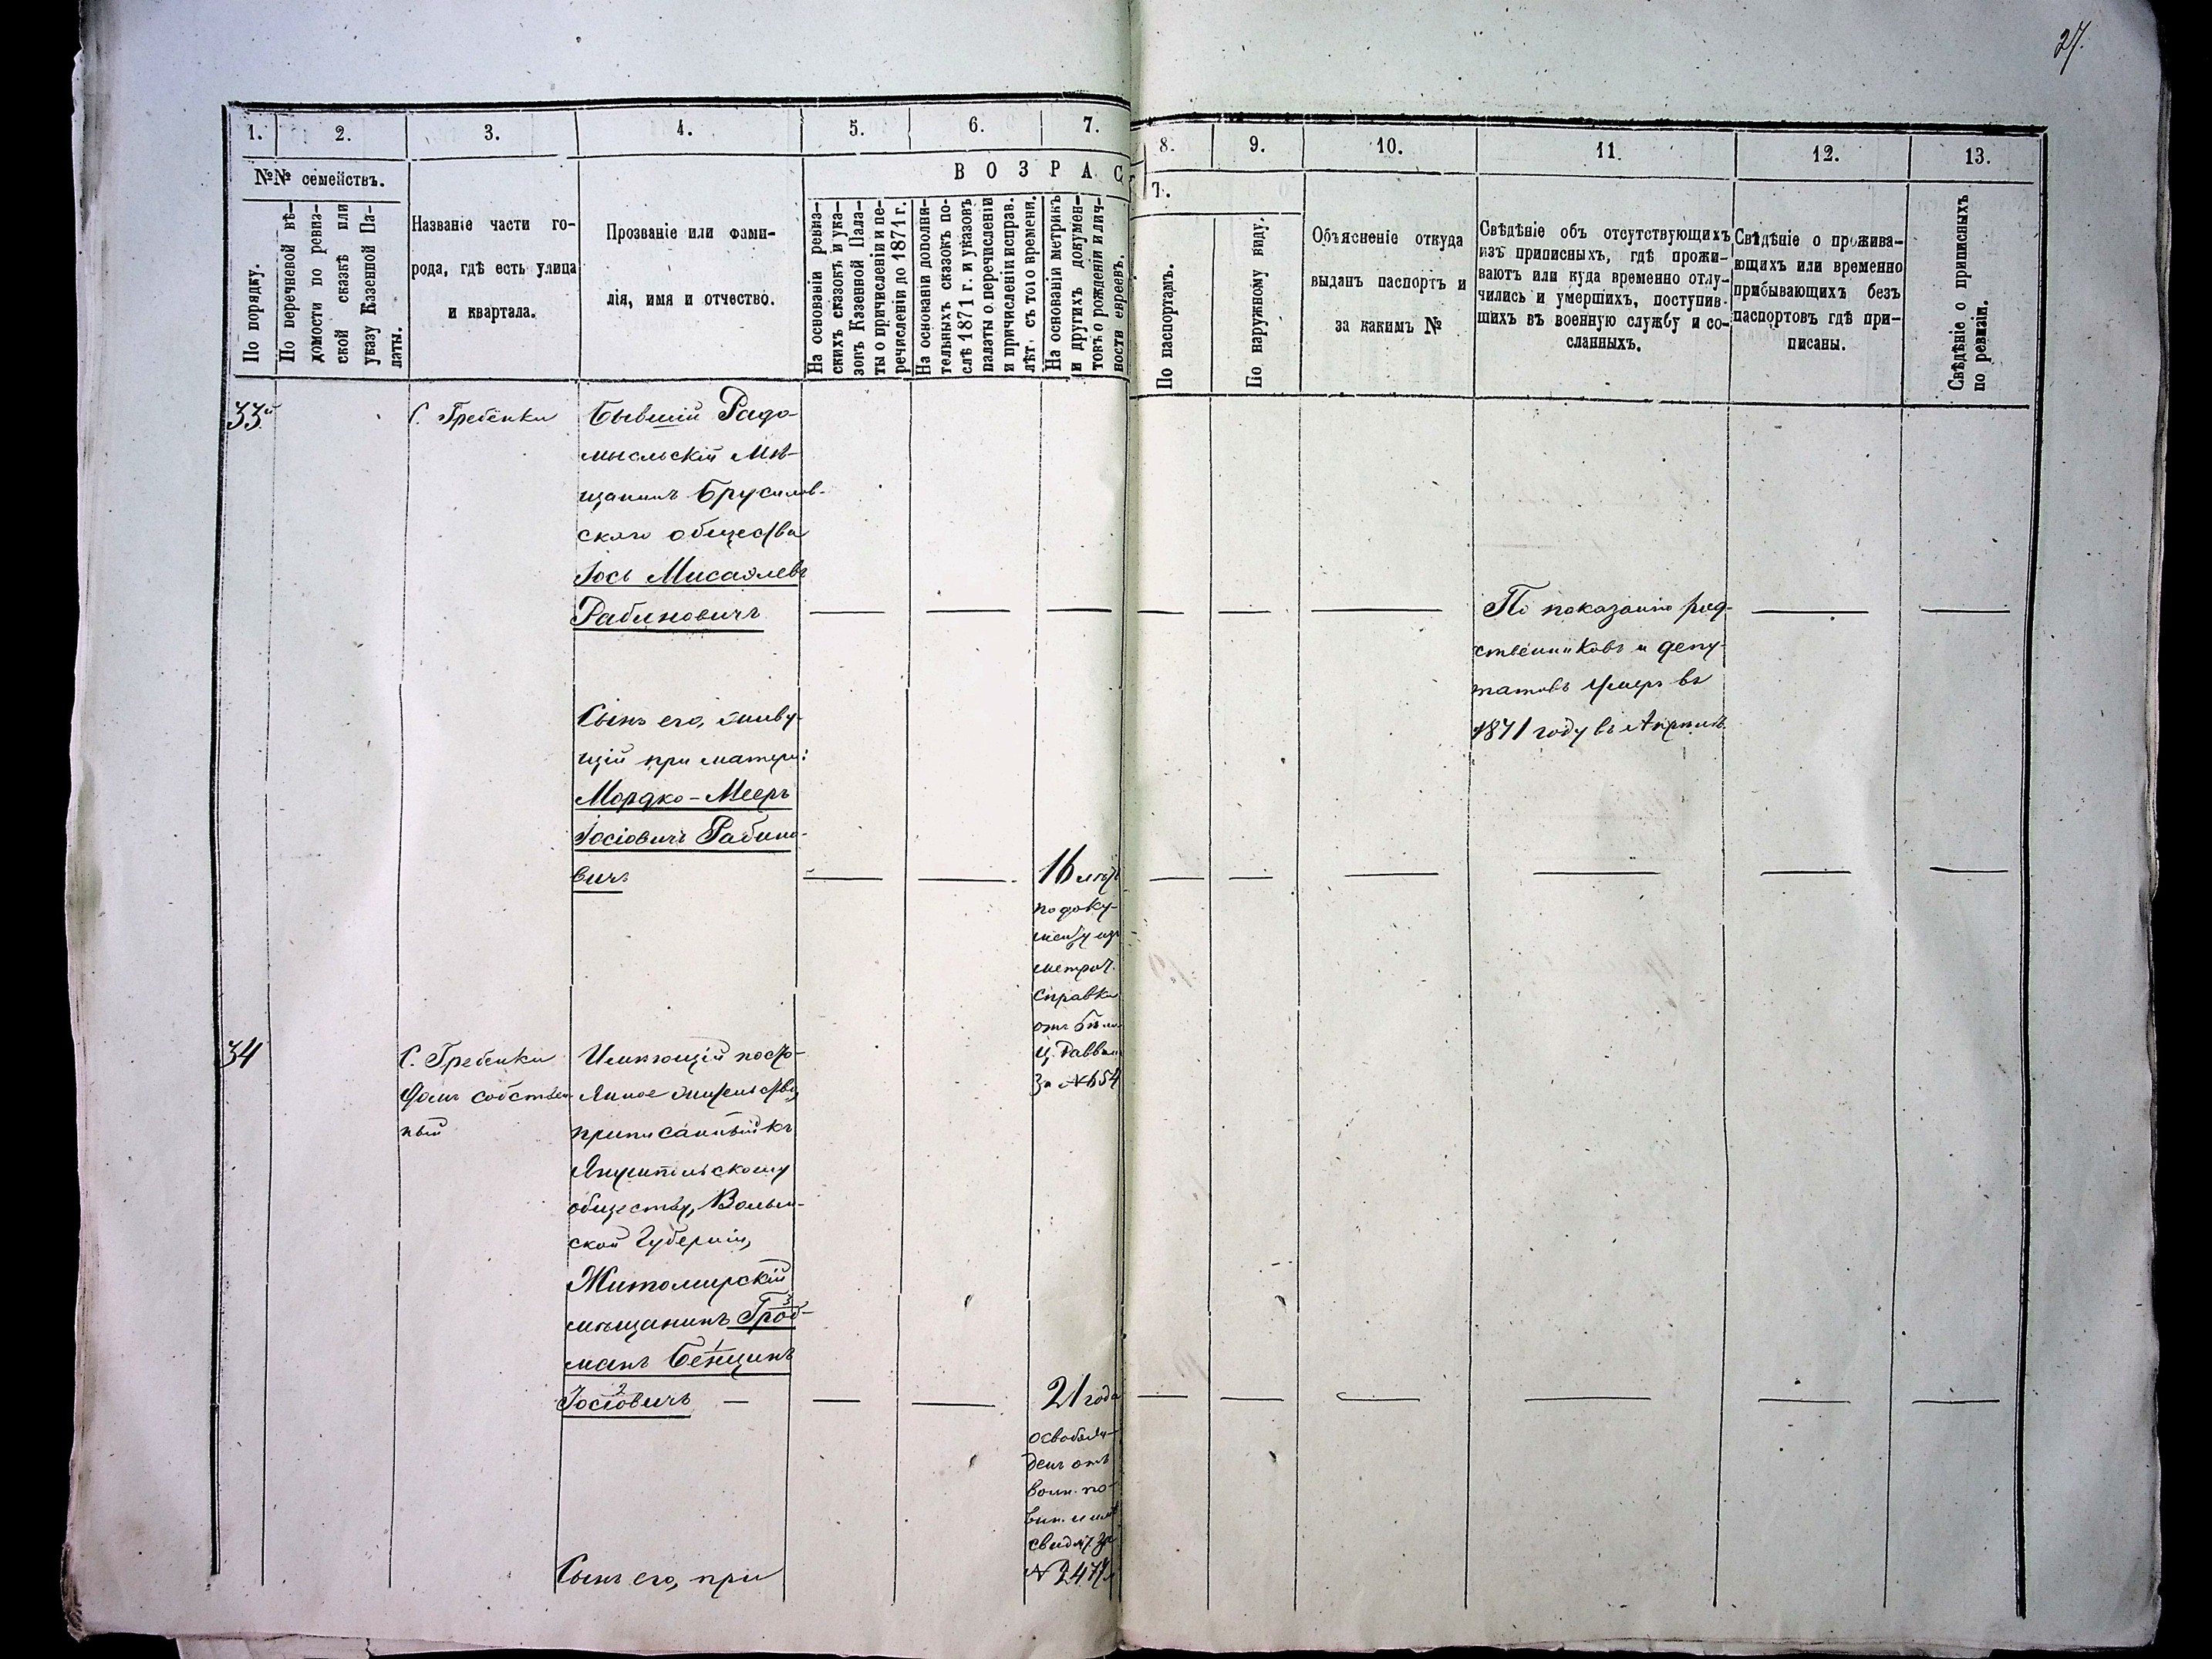 27.
1.
2.
3.
4.
5.
6.
7.
8.
9.
10.
11.
12.
13.
№№ семействъ.
ВОЗРАСТ
Т.
По порядку.
По перечневой вѣ-
домости по ревиз-
ской сказкѣ или
указу Казенной Па-
латы.
Названіе части го-
рода, гдѣ есть улица
и квартала.
Прозваніе или фами-
лія, имя и отчество.
На основаніи ревиз-
скихъ сказокъ и ука-
зовъ Казенной Пала-
ты о причисленіи и пе-
речисленіи до 1871 г.
На основаніи дополни-
тельныхъ сказокъ по-
слѣ 1871 г. и указовъ
палаты о перечисленіи
и причисленіи исправ.
лѣт. съ того времени.
На основаніи метрикъ
и другихъ докумен-
товъ о рожденіи и лич-
ности евреевъ.
По паспортамъ.
По наружному виду.
Объясненіе откуда
выданъ паспортъ и
за какимъ №
Свѣдѣніе объ отсутствующихъ
изъ приписныхъ, гдѣ прожи-
ваютъ или куда временно отлу-
чились и умершихъ, поступив-
шихъ въ военную службу и со-
сланныхъ.
Свѣдѣніе о прожива-
ющихъ или временно
прибывающихъ безъ
паспортовъ гдѣ при-
писаны.
Свѣдѣніе о приписныхъ
по ревизіи.
33й
С. Гребенки
Бывшій Радо-
мысльскій Мѣ-
щанинъ Брусилов-
ского общества
Іось Мисаолевъ
Рабиновичъ
По показанію род-
ственниковъ и депу-
татовъ умеръ въ
1871 году въ Апрѣлѣ
Сынъ его, живу-
щій при матери:
Мордко-Мееръ
Іосіовичъ Рабино-
вичъ
16 лѣтъ
по доку-
менту изъ
метрич.
справки
отъ Бѣло
Ц. Раввин
За №654
34
С. Гребенки
домъ собствен-
ный
Имѣющій посто-
янное жительство,
приписанный къ
Янушпольскому
обществу, Волын-
ской Губерніи,
Житомирскій
мѣщанинъ Грод-
3
манъ Бенціинъ
1
Іосіовичъ
2
21 года
освобож-
денъ отъ
воин. по-
вин. и имѣ
свидѣт. за
№ 2477
Сынъ его, при